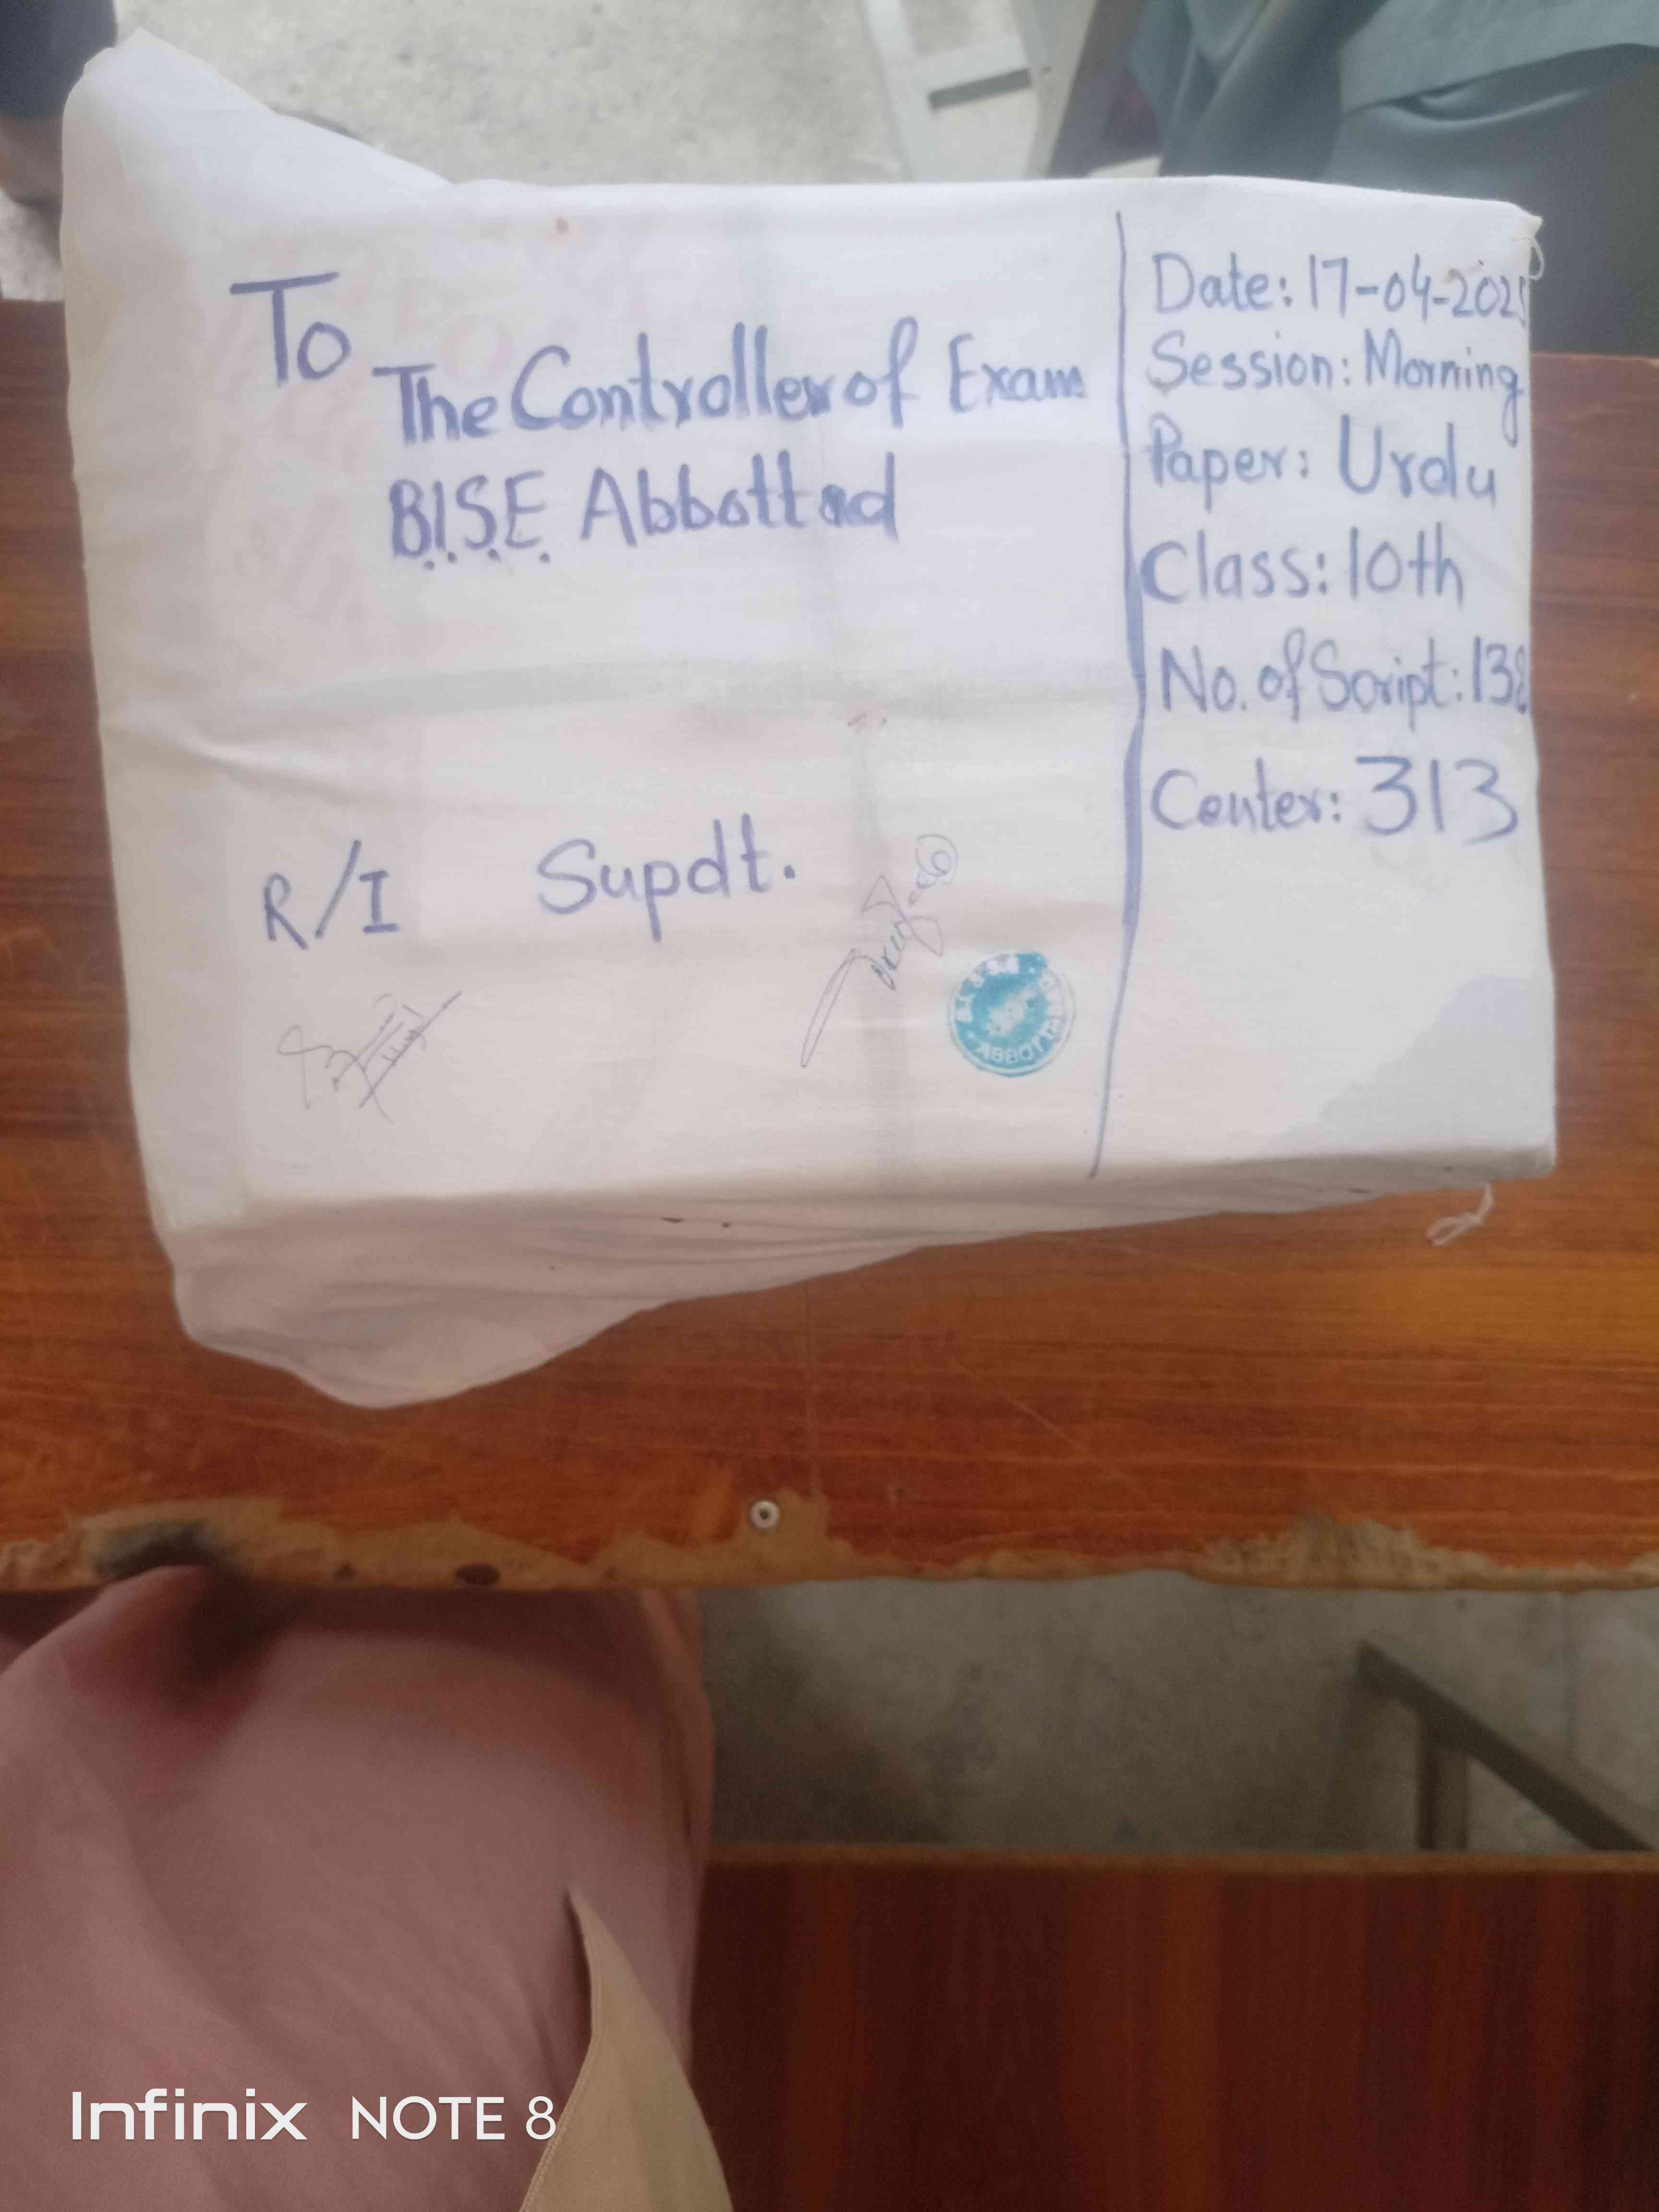 To
The Controller of Exam
B.I.S.E. Abbottad
R/I Supdt.
Date: 17-04-2025
Session: Morning
Paper: Urdu
Class: 10th
No. of Script: 138
Center: 313
ABBOTTABAD
Infinix NOTE 8